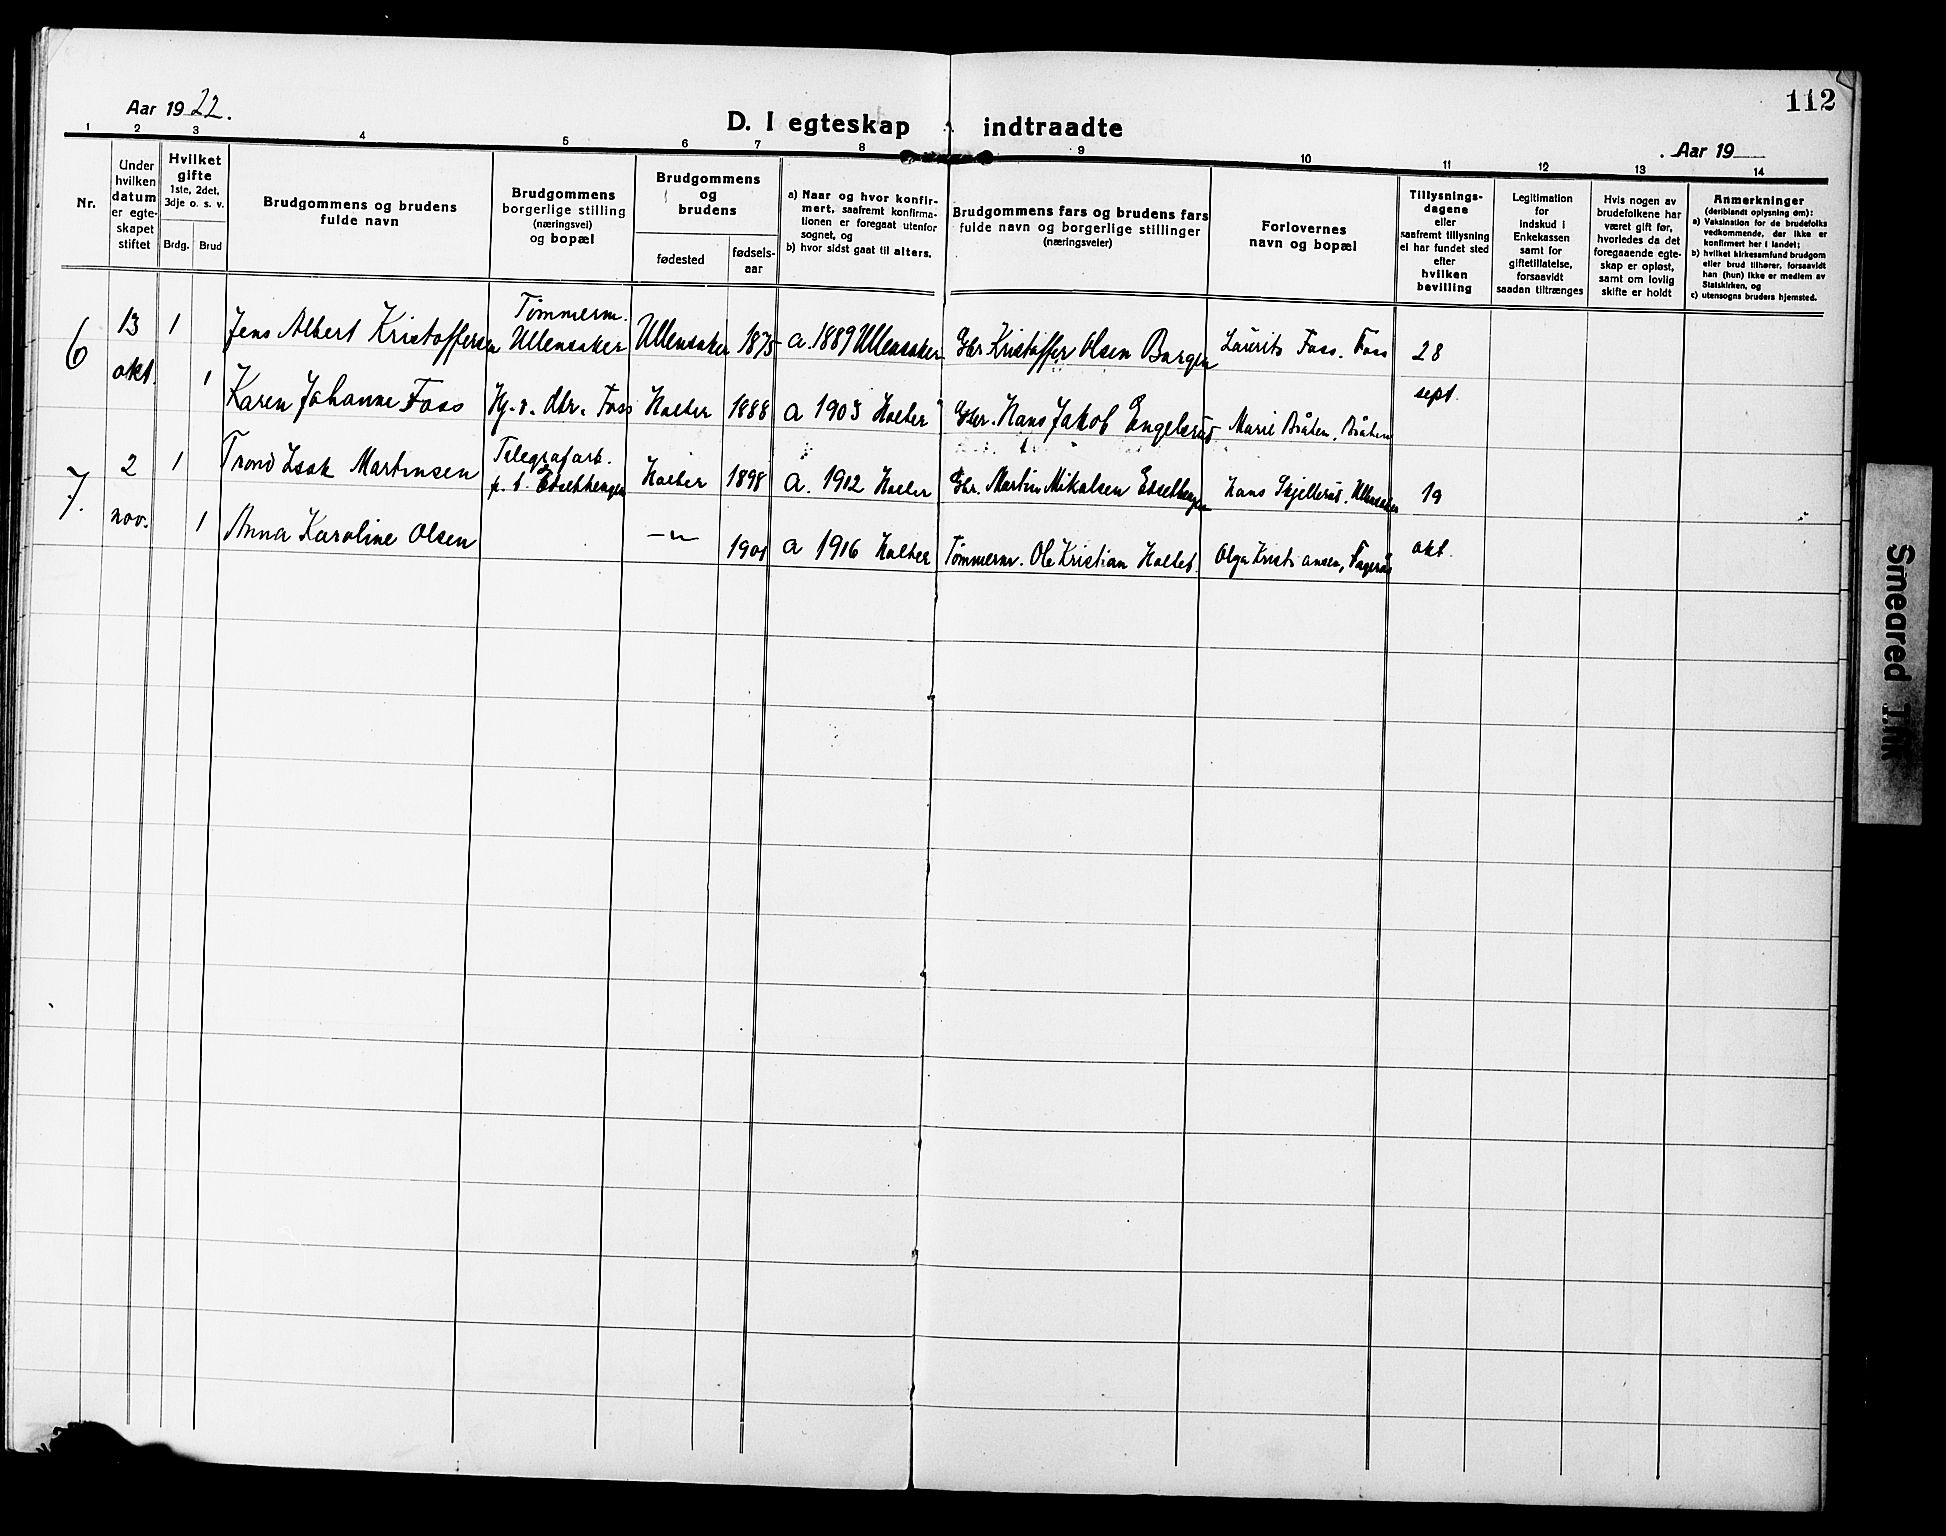 112
Aar 1922.
D. I egteskap indtraadte
Aar 19
1 2 3 4 5 6 7 8 9 10 11 12 13 14
Nr.
Under
hvilken
datum
er egte-
skapet
stiftet
Hvilket
gifte
1ste, 2det,
3dje o. s. v.
Brdg. Brud
Brudgommens og brudens
fulde navn
Brudgommens
borgerlige stilling
(næringsvei)
og bopæl
Brudgommens
og
brudens
fødested
fødsels-
aar
a) Naar og hvor konfir-
mert, saafremt konfirma-
tionen er foregaat utenfor
sognet, og
b) hvor sidst gaat til alters.
Brudgommens fars og brudens fars
fulde navn og borgerlige stillinger
(næringsveier)
Forlovernes
navn og bopæl
Tillysnings-
dagene
eller
saafremt tillysning
ei har fundet sted
efter
hvilken
bevilling
Legitimation
for
indskud i
Enkekassen
samt for
giftetillatelse,
forsaavidt
saadan tiltrænges
Hvis nogen av
brudefolkene har
været gift før,
hvorledes da det
foregaaende egte-
skap er opløst,
samt om lovlig
skifte er holdt
Anmerkninger
(deriblandt oplysning om):
a) Vaksination for de brudefolks
vedkommende, der ikke er
konfirmert her i landet;
b) hvilket kirkesamfund brudgom
eller brud tilhører, forsaavidt
han (hun) ikke er medlem av
Statskirken, og
c) utensogns bruders hjemsted.
6 13 okt. 1 Jens Albert Kristoffersen Tømmerm. Ullensaker Ullensaker 1875 a. 1889 Ullensaker Gbr Kristoffer Olsen Borgen Laurits Foss. Foss 28 sept.
1 Karen Johanne Foss Hj. v. dtr. Foss Holter 1888 a 1903 Holter Gbr. Hans Jakob Engelsrud Marie Bråten, Bråten
7. 2 nov. 1 Trond Isak Martinsen Telegrafarb. Holter 1898 a. 1912 Holter Gbr. Martin Mikalsen Hans Skjellerud. Ullensaker 19 okt.
1 Anna Karoline Olsen -"- 1901 a 1916 Holter Tømmerm. Ole Kristian Holter. Olga Kristiansen, Fagerås
Smeared Ink